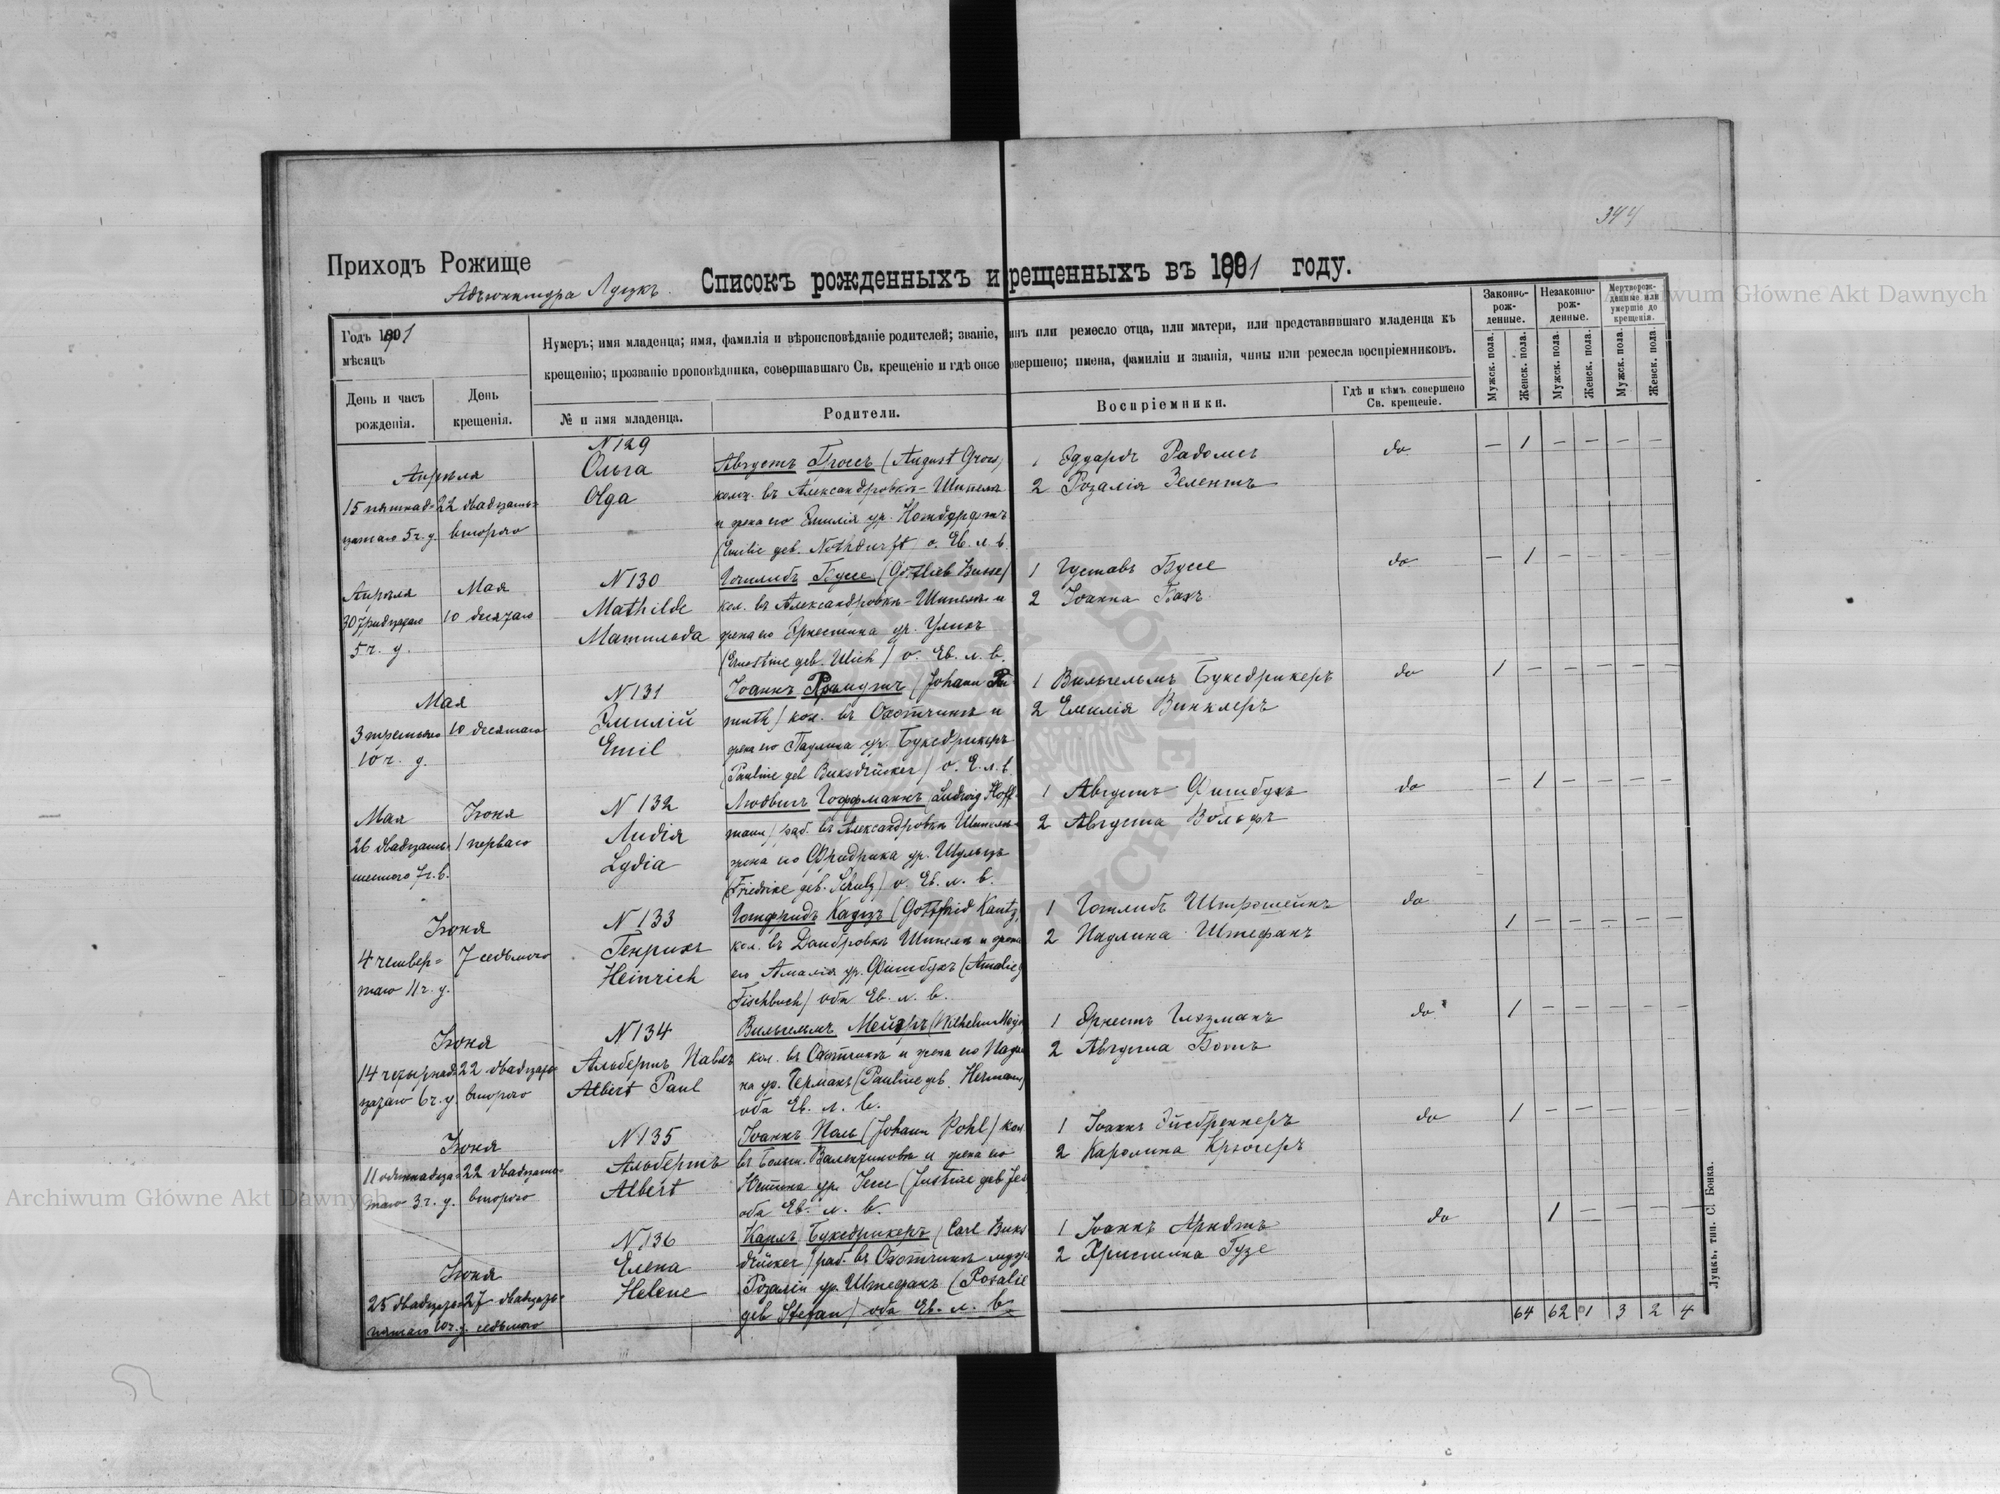 344
Приходъ Рожище
Адъюнктура Луцкъ.
Списокъ рожденныхъ и рещенныхъ въ 1901 году.
Годъ 1901
мѣсяцъ
День и часъ
рожденія.
День
крещенія.
Нумеръ; имя младенца; имя, фамилія и вѣроисповѣданіе родителей; званіе, инъ или ремесло отца, или матери, или представившаго младенца къ
крещенію; прозваніе проповѣдника, совершавшаго Св. крещеніе и гдѣ оное овершено; имена, фамиліи и званія, чины или ремесла воспріемниковъ.
№ и имя младенца.
Родители.
Воспріемники.
Гдѣ и кѣмъ совершено
Св. крещеніе.
Законно-
рож-
денные.
Незаконно-
рож-
денные.
Мертворож-
денные или
умершіе до
крещенія.
Мужск. пола.
Женск. пола.
Мужск. пола.
Женск. пола.
Мужск. пола.
Женск. пола.
Апрѣля
15 пятнад-
цатаго 5 ч. д.
22 двадцать-
второго
N 129
Ольга
Olga
Августъ Гроссъ (August Gross)
кол. въ Александровкѣ-Шинелѣ
и жена его Емилія ур. Нотдурфтъ
(Emilie geb. Nothdurft) о. Ев. л. в.
1 Эдуардъ Радомсъ
2 Розалія Зелентъ
do
— 1 — — — —
Апрѣля
30 тридцатаго
5 ч. д.
Мая
10 десятаго
N 130
Mathilde
Матильда
Готлибъ Буссе (Gottlieb Busse)
кол. въ Александровкѣ-Шинелѣ и
жена его Эрнестина ур. Улихъ
(Ernestine geb. Ulich) о. Ев. л. в.
1 Густавъ Буссе
2 Іоанна Бахъ
do
— 1 — — — —
Мая
3 третьяго
10 ч. д.
10 десятаго
N 131
Эмилій
Emil
Іоаннъ (Johann
muth) кол. въ Охотчинѣ и
жена его Паулина ур. Буксдрикеръ
(Pauline geb Buksdrücker) о. Е. л. в.
1 Вильгельмъ Буксдрикеръ
2 Емилія Винклеръ
do
1 — — — — —
Мая
26 двадцать-
шестого 7 ч. в.
Іюня
1 перваго
N 132
Лидія
Lydia
Людвигъ Гоффманнъ (Ludwig Hoff-
mann) раб. въ Александровкѣ Шинелѣ
жена его Фридрика ур. Шульцъ
(Friedrike geb. Schulz) о. Ев. л. в.
1 Августъ Фишбухъ
2 Августа Вольфъ
do
— 1 — — — —
Іюня
4 четвер-
таго 11 ч. д.
7 седьмого
N 133
Генрихъ
Heinrich
Готфридъ Кауцъ (Gottfried Kautz)
кол. въ Домбровкѣ Шинелѣ и жена
его Амалія ур. Фишбухъ (Amalie
Fischbuch) оба Ев. л. в.
1 Готлибъ Штрошейнъ
2 Паулина Штефанъ
do
1 — — — — —
Іюня
14 четырнад-
цатаго 6 ч. д.
22 двадцать
второго
N 134
Альбертъ Павлъ
Albert Paul
Вильгельмъ Мейеръ (Wilhelm Meyer
кол. въ Охотчинѣ и жена его Паули
на ур. Германъ (Pauline geb. Hermann)
оба Ев. л. в.
1 Эрнестъ Глязманъ
2 Августа Ботъ
do
1 — — — — —
Іюня
11 одиннадца-
таго 3 ч. д.
22 двадцать-
второго
N 135
Альбертъ
Albert
Іоаннъ Поль (Johann Pohl) кол
въ Больш. Валентиновкѣ и жена его
Юстина ур. Іессе (Justine geb Jes
оба Ев. л. в.
1 Іоаннъ Эйсбреннеръ
2 Каролина Крюгеръ
do
1 — — — — —
Іюня
25 двадцать-
пятаго 10 ч. д.
27 двадцать-
седьмого
N 136
Елена
Helene
Карлъ Буксдрикеръ (Carl Buks
drücker) раб. въ Охотчинѣ
Розалія ур. Штефанъ (Rosalie
geb Stefan) оба Ев. л. в.
1 Іоаннъ Арндтъ
2 Христина Гузе
do
1 — — — —
64 62 1 3 2 4
Луцкъ, тип. С. Бонка.
Archiwum Główne Akt Dawnych
Archiwum Główne Akt Dawnych